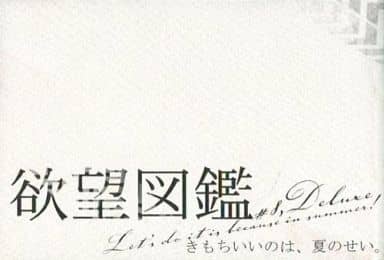 欲望図鑑
#8, Deluxe,
Let's do it is because in summer!
きもちいいのは、夏のせい。